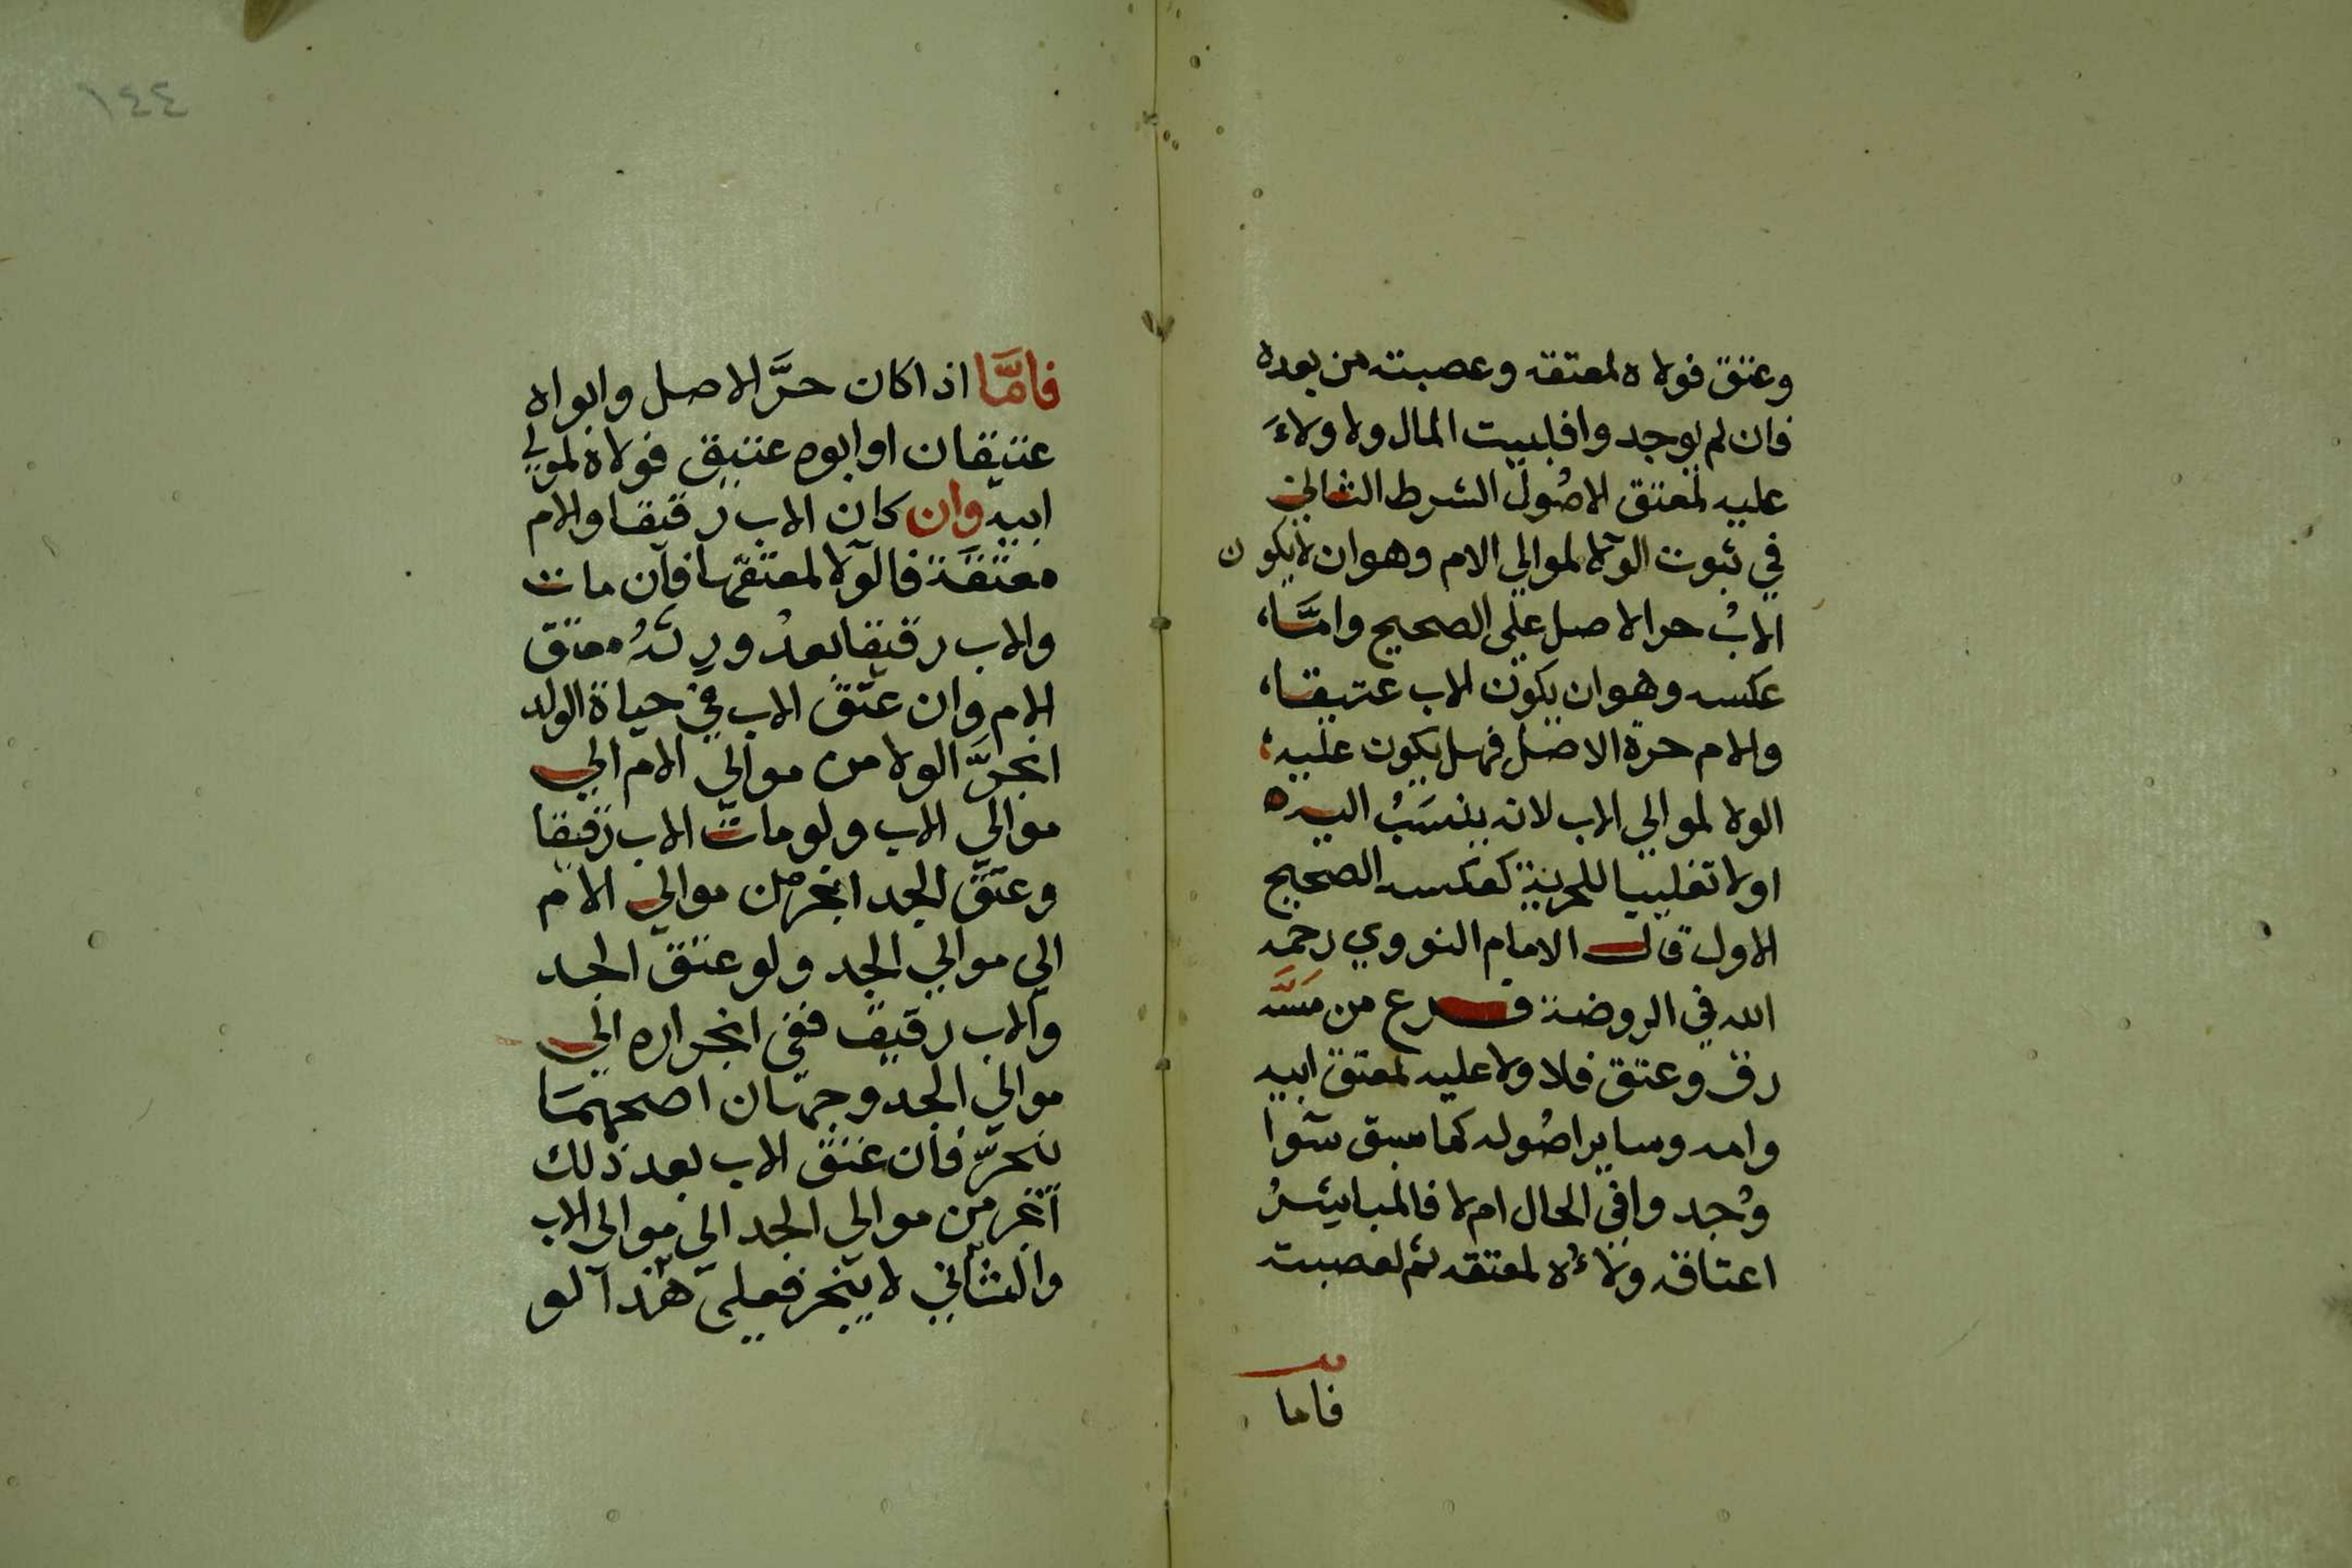 وعتق فولاه لمعتقه وعصبته من بعده
فان لم يوجد وا فلبيت المال ولا ولاءَ
عليه لمعتق الاصُول الشرط الثالث
في ثبوت الولا لموالي الام وهو ان لا يكون
الابُ حر الاصل على الصحيح وامَّا،
عكسه وهو ان يكون الاب عتيقا،
والام حرة الاصل فهل يكون عليه؛
الولا لموالي الاب لانه ينسَبُ اليه
اولا تغليبا للحرية كعكسه الصحيح
الاول قال الامام النووي رحمه
الله في الروضة فرع من مَسَّه
رق وعتق فلا ولا عليه لمعتق ابيه
وامه وساير اصُوله كما سبق سوا
وُجد وا في الحال ام لا فالمباشرُ
اعتاقه ولاءُه لمعتقه ثم لعصبته
فاما
١٤٤
فامَّا اذا كان حرَّ الاصل وابواه
عتيقان او ابوه عتيق فولاه لمولي
ابيه وان كان الاب رقيقا والام
معتقَة فالولا لمعتقها فان مات
والاب رقيقا بعدُ ورثهُ معتق
الام وان عتق الاب في حياة الولد
انجرَّ الولا من موالي الام الي
موالي الاب ولو مات الاب رقيقا
وعتق الجد انجر من موالي الام
الي موالي الجد ولو عتق الجد
والاب رقيق ففي انجراره الي
موالي الجد وجهان اصحهمَا
ينجرّ فان عتق الاب بعد ذلك
انجر من موالي الجد الي موالي الاب
والثاني لا ينجر فعلى هذا لو